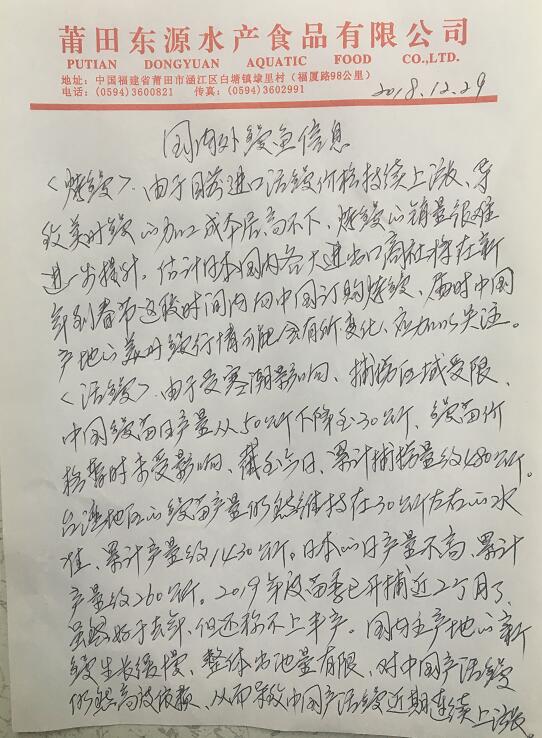 莆田东源水产食品有限公司
PUTIAN DONGYUAN AQUATIC FOOD CO.,LTD.
地址：中国福建省莆田市涵江区白塘镇埭里村（福厦路98公里）
电话：(0594)3600821 传真：(0594)3602991
2018.12.29
国内外鳗鱼信息
〈烤鳗〉.由于目前进口活鳗价格持续上涨、导
致美洲鳗的加工成本居高不下、烤鳗的销量很难
进一步提升。估计日本国内各大进出口商社将在新
年到春节这段时间内向中国订购烤鳗、届时中国
产地的美洲鳗行情可能会有所变化、应加以关注。
〈活鳗〉.由于受寒潮影响、捕捞区域受限、
中国鳗苗日产量从50公斤下降至30公斤、鳗苗价
格暂时未受影响、截至今日、累计捕捞量约480公斤。
台湾地区的鳗苗产量仍然维持在30公斤左右的水
准、累计产量约1430公斤。日本的日产量不高、累计
产量约260公斤。2019年度苗季已开捕近2个月了、
虽然好于去年、但还称不上丰产。国内主产地的新
鳗生长缓慢、整体出池量有限、对中国产活鳗
仍然高度依赖、从而导致中国产活鳗近期连续上涨。